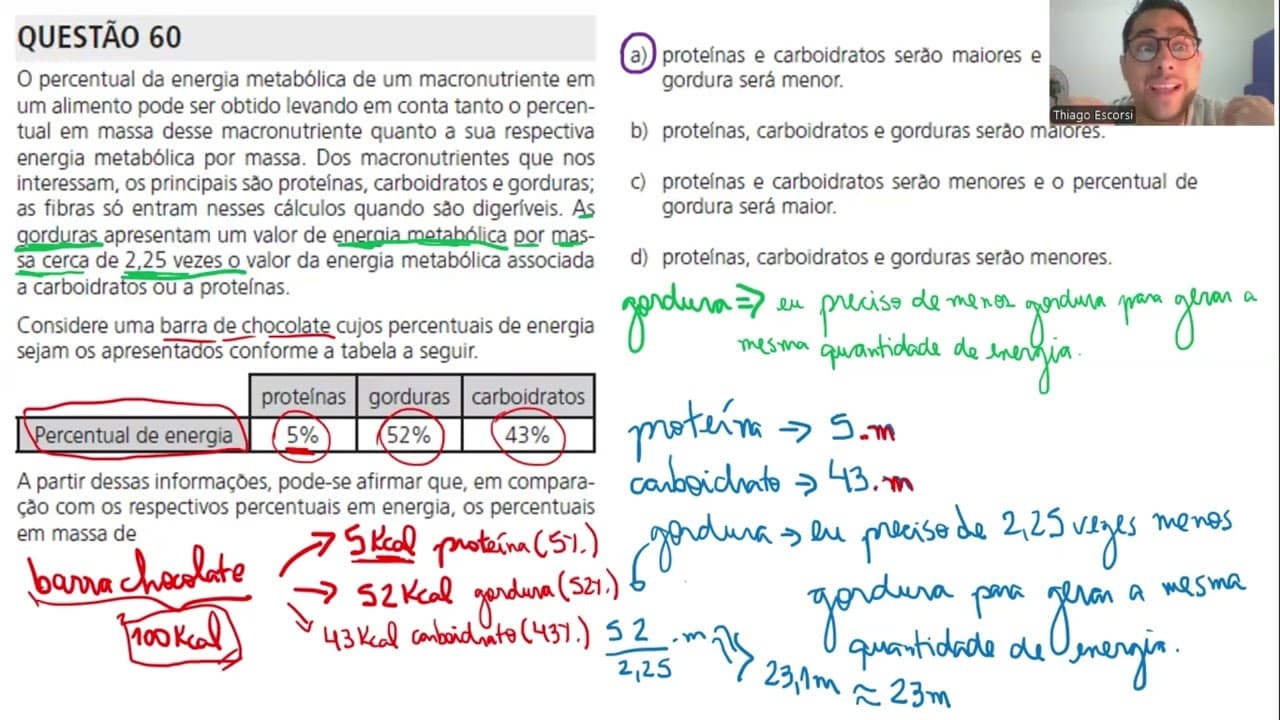 QUESTÃO 60
O percentual da energia metabólica de um macronutriente em
um alimento pode ser obtido levando em conta tanto o percen-
tual em massa desse macronutriente quanto a sua respectiva
energia metabólica por massa. Dos macronutrientes que nos
interessam, os principais são proteínas, carboidratos e gorduras;
as fibras só entram nesses cálculos quando são digeríveis. As
gorduras apresentam um valor de energia metabólica por mas-
sa cerca de 2,25 vezes o valor da energia metabólica associada
a carboidratos ou a proteínas.
Considere uma barra de chocolate cujos percentuais de energia
sejam os apresentados conforme a tabela a seguir.
proteínas gorduras carboidratos
Percentual de energia 5% 52% 43%
A partir dessas informações, pode-se afirmar que, em compara-
ção com os respectivos percentuais em energia, os percentuais
em massa de
barra chocolate
100 Kcal
→ 5 Kcal proteína (5%.)
→ 52 Kcal gordura (52%.)
43 Kcal carboidrato (43%.)
a) proteínas e carboidratos serão maiores e
gordura será menor.
b) proteínas, carboidratos e gorduras serão maiores.
c) proteínas e carboidratos serão menores e o percentual de
gordura será maior.
d) proteínas, carboidratos e gorduras serão menores.
gordura ⇒ eu preciso de menos gordura para gerar a
mesma quantidade de energia.
proteína → 5.m
carboidrato → 43.m
gordura → eu preciso de 2,25 vezes menos
gordura para gerar a mesma
quantidade de energia.
52/2,25 .m
23,1m ≈ 23m
Thiago Escorsi